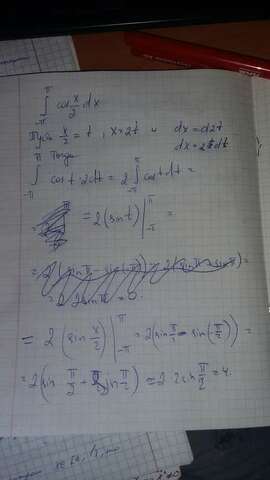 ∫_{-π}^{π} cos x/2 dx
Пусть x/2 = t, x=2t и dx=d2t
dx=2dt
Тогда
∫_{-π}^{π} cos t·2dt = 2∫_{-π}^{π} cos t dt =
= 2(sin t)|_{-π}^{π} =
= 2(sin x/2)|_{-π}^{π} = 2(sin π/2 - sin(-π/2)) =
= 2(sin π/2 + sin π/2) = 2·2sin π/2 = 4.